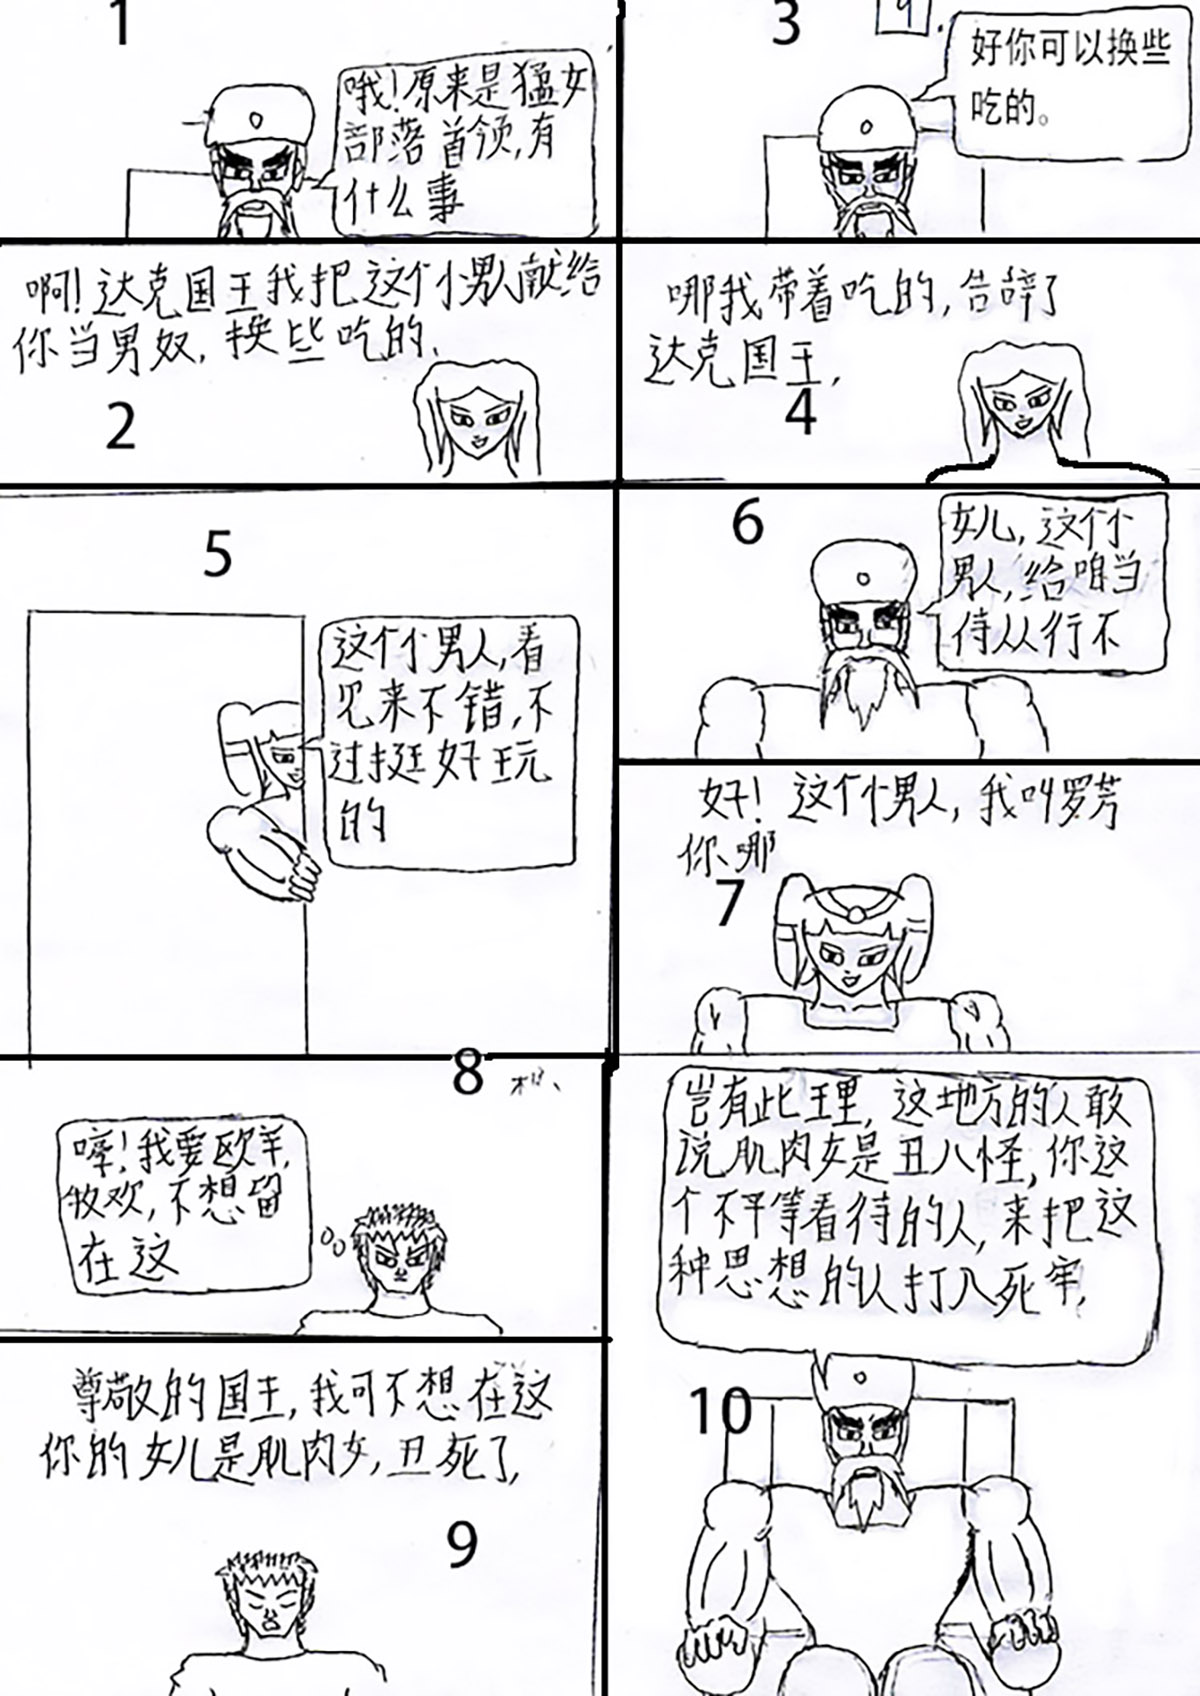 1
哦！原来是猛女
部落首领,有
什么事
2
啊！达克国王我把这个小男人献给
你当男奴,换些吃的,
3
好你可以换些
吃的。
4
哪我带着吃的,告辞了
达克国王,
5
这个个男人,看
见来不错,不
过挺好玩
的
6
女儿,这个个
男人,给咱当
侍从行不
7
好！这个小男人,我叫罗芳
你哪
8
哼！我要欧羊,
牧欢,不想留
在这
9
尊敬的国王,我可不想在这
你的女儿是肌肉女,丑死了,
10
岂有此理,这地方的人敢
说肌肉女是丑八怪,你这
个不平等看待的人,来把这
种思想的人打入死牢,